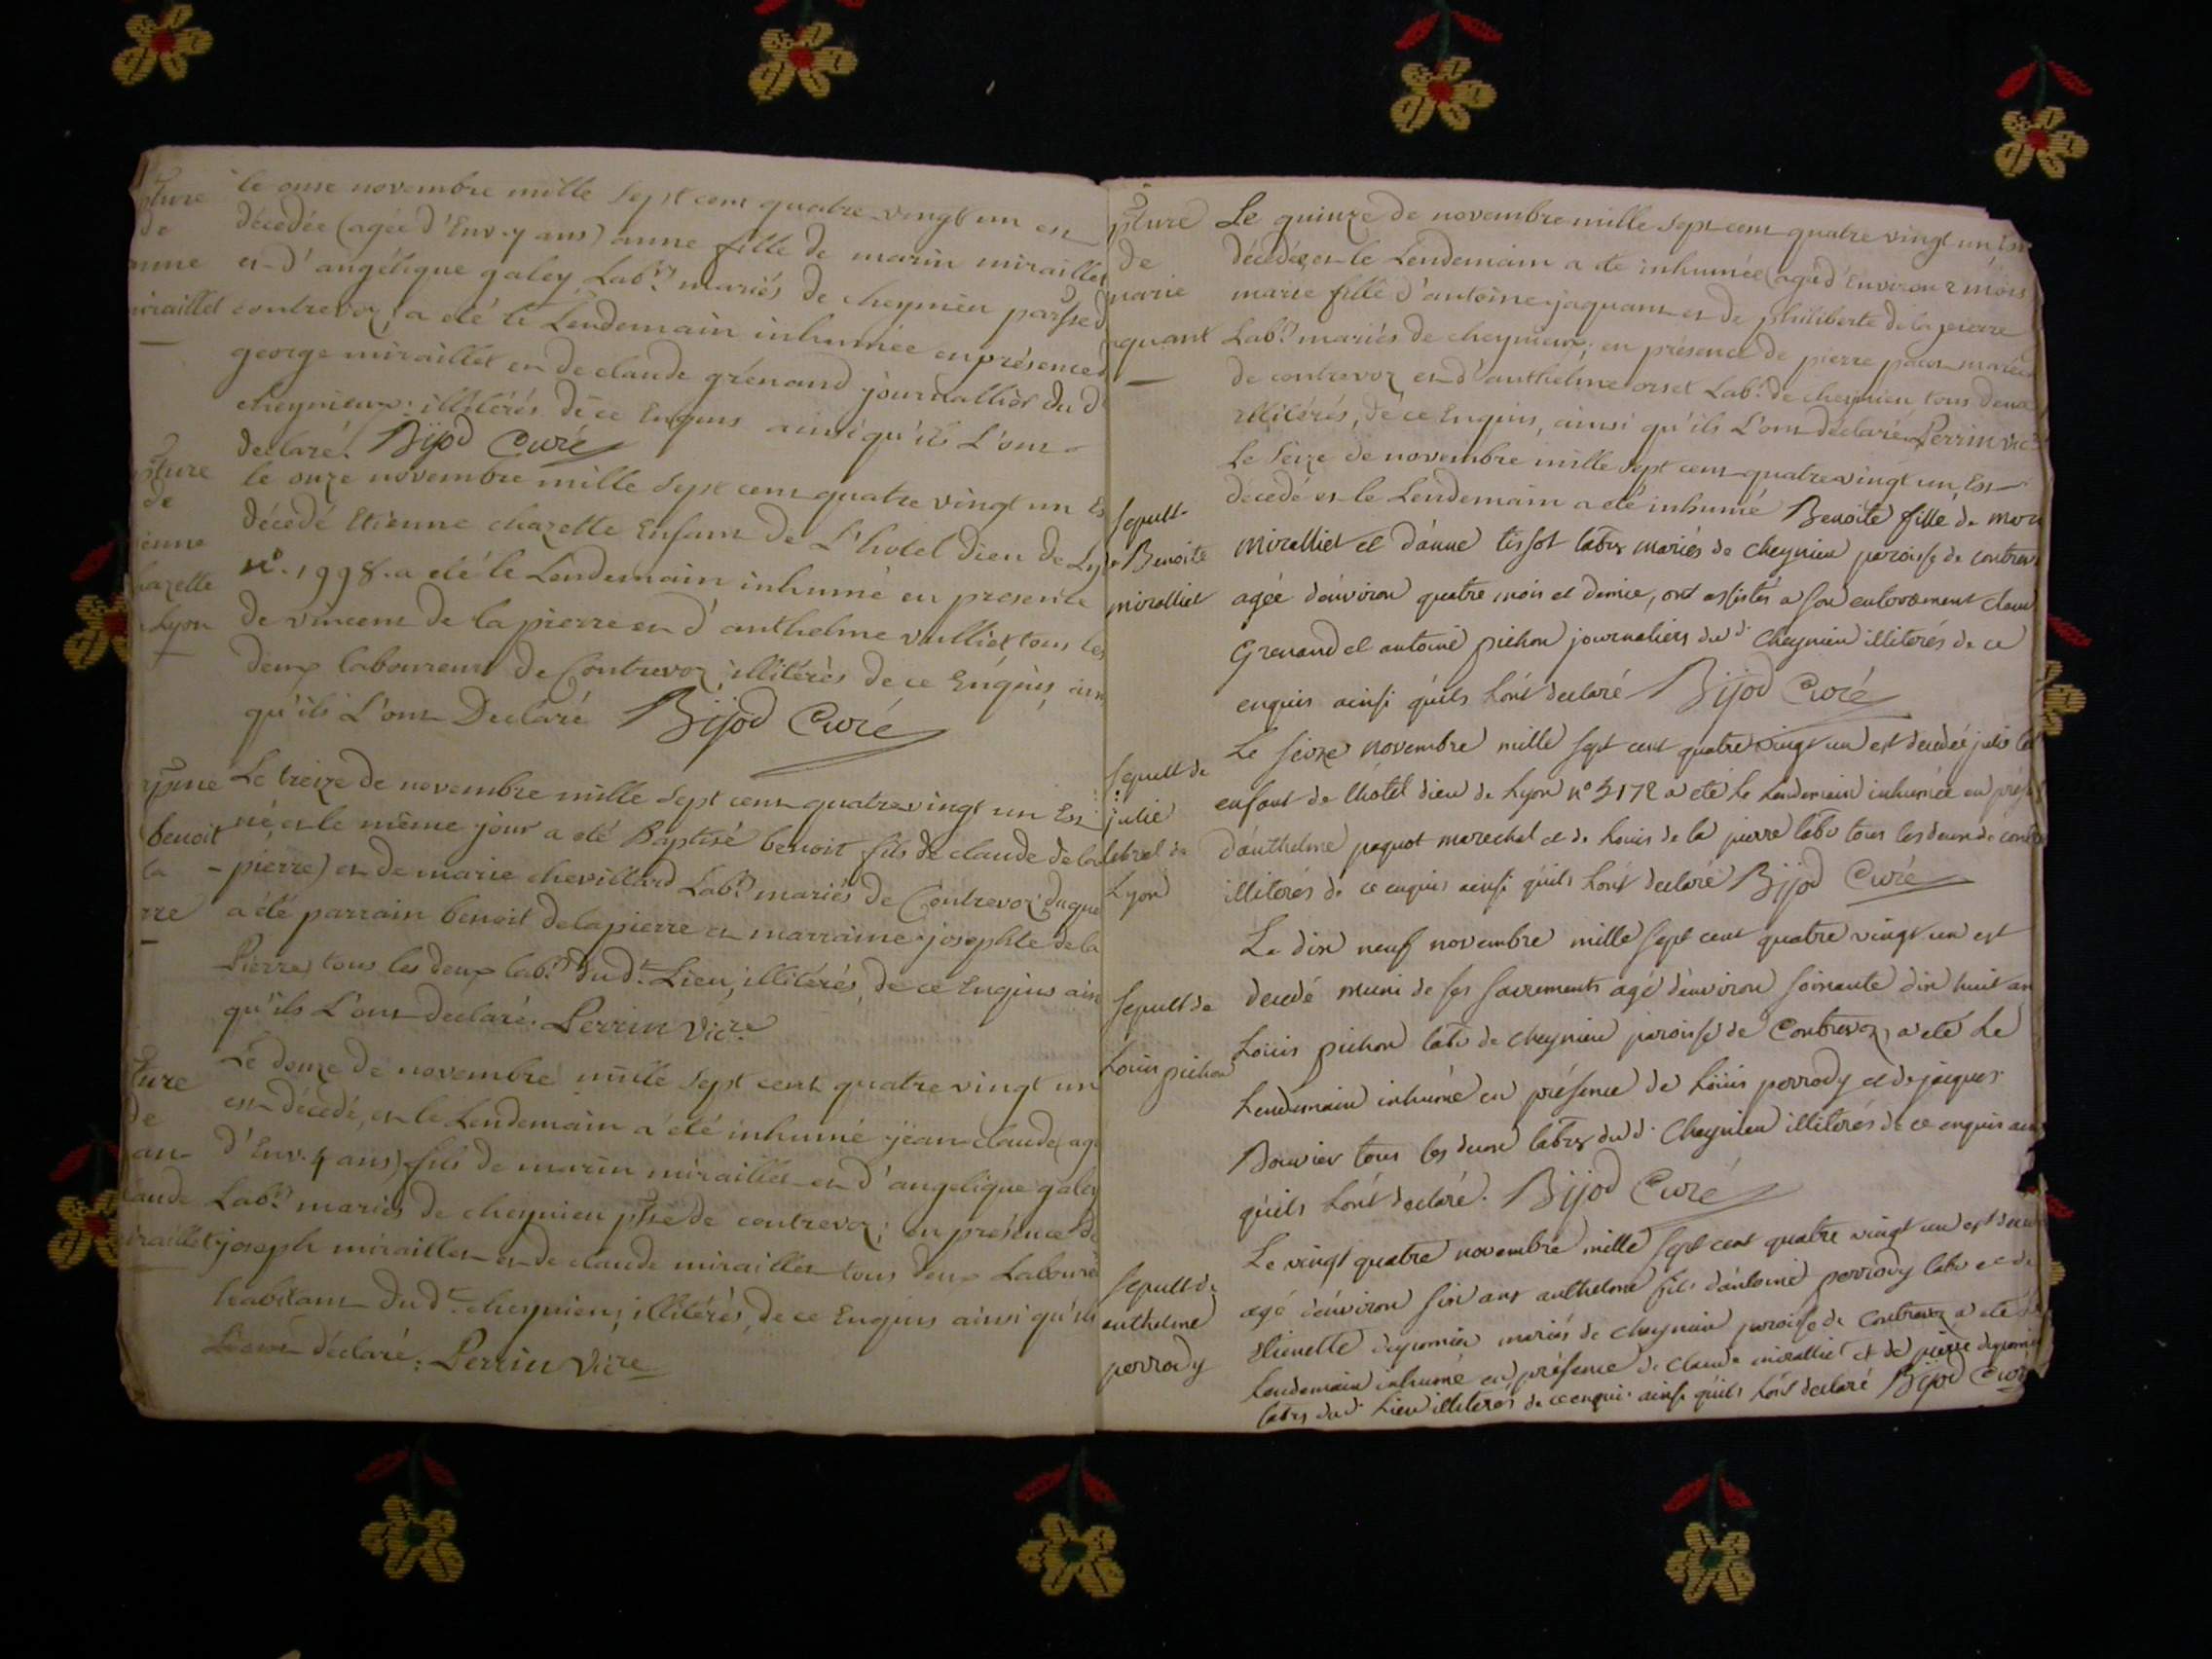 pture
de
anne
miraillet
le onse novembre mille sept cent quatre vingt un est
décédée (agée d'Env. 7 ans) anne fille de marin miraillet
et d'angélique galey Lab.rs mariés de cheynieu parsse d
contrevoz, a eté le Lendemain inhumée en présence d
george miraillet et de claude grénand journallier du d
cheynieux; illitérés de ce Enquis ainsi qu'ils L'ont
declaré. Bijod Curé
pture
de
ienne
hazelle
Lyon
le onze novembre mille sept cent quatre vingt un Es
décédé Etienne chazelle Enfant de L'hotel Dieu de Ly
N.o 1998. a eté le Lendemain inhumé en presence
de vincent de la pierre et d'anthelme vulliet tous les
deux laboureurs de Contrevoz, illitérés de ce Enquis, ain
qu'ils L'ont Declaré Bijod Curé
benoit
la
rre
Le treize de novembre mille sept cent quatre vingt un Est
né, et le même jour a eté Baptisé benoit fils de claude de la
pierre et de marie chevillard Lab.rs mariés de Contrevoz; duque
a été parrain benoit delapierre et marraine josephte de la
Pierre tous les deux lab.rs dud.t Lieu, illitérés, de ce Enquis ain
qu'ils L'ont declaré. Perrin Vic.re
ture
de
an
laude
iraillet
Le douze de novembre mille sept cent quatre vingt un
est décédé, et le Lendemain a été inhumé jean claude, agé
d'Env. 4 ans) fils de marin miraillet et d'angelique galey
Lab.rs mariés de cheynieu psse de contrevoz; en présence de
joseph miraillet et de claude miraillet tous deux Laboure
habitant dud.t cheynieu; illitérés, de ce Enquis ainsi qu'ils
L'ont déclaré: Perrin Vicre
pture
de
marie
jaquant
Le quinze de novembre mille sept cent quatre vingt un, Est
décédée, et le Lendemain a été inhumée (agé d'Environ 2 mois
marie fille d'antoine jaquant et de philiberte de la pierre
Lab.rs mariés de cheynieux; en présence de pierre
de contrevoz et d'anthelme orset Lab.r de cheynieu tous deux
illitérés, de ce Enquis, ainsi qu'ils L'ont déclaré Perrin vic.re
Sepult.
Benoite
miralliet
Le Seize de novembre mille sept cent quatre vingt un, Est
décedé et le Lendemain a été inhumé Benoite fille de
miralliet et d'anne tissot labrs mariés de cheynieu paroisse de contrev
agée d'environ quatre mois et demie, ont assistés a son enterrement claud
Grenand et antoine pichon journaliers dud. cheynieu illiterés de ce
enquis ainsi qu'ils l'ont declaré Bijod Curé
Sepult de
julie
lebrel de
Lyon
Le seize novembre mille sept cent quatre vingt un est decedée julie leb
enfant de l'hotel dieu de Lyon n° 5172 a eté le lendemain inhumée en prés
d'anthelme paquot marechal et de Louis de la pierre labr tous les deux de contre
illiterés de ce enquis ainsi qu'ils l'ont declaré Bijod Curé
Sepult de
Louis pichon
Le dix neuf novembre mille sept cent quatre vingt un est
decedé muni de ses sacrements agé d'environ soixante dix huit an
Louis pichon labr de cheynieu paroisse de Contrevoz, a eté le
Lendemain inhumé en présence de Louis perrody et de jacques
Bouvier tous les deux labrs dud. Cheynieu illiterés de ce enquis ain
qu'ils l'ont declaré. Bijod Curé
Sepult de
anthelme
perrody
Le vingt quatre novembre mille sept cent quatre vingt un est dece
agé d'environ six ans anthelme fils d'antoine perrody labr et de
Etienette mariés de cheynieu paroisse de Contrevoz a eté le
Lendemain inhumé en présence de Claude miralliet et de pierre
labrs dud. Lieu illiterés de ce enquis ainsi qu'ils l'ont declaré Bijod Curé